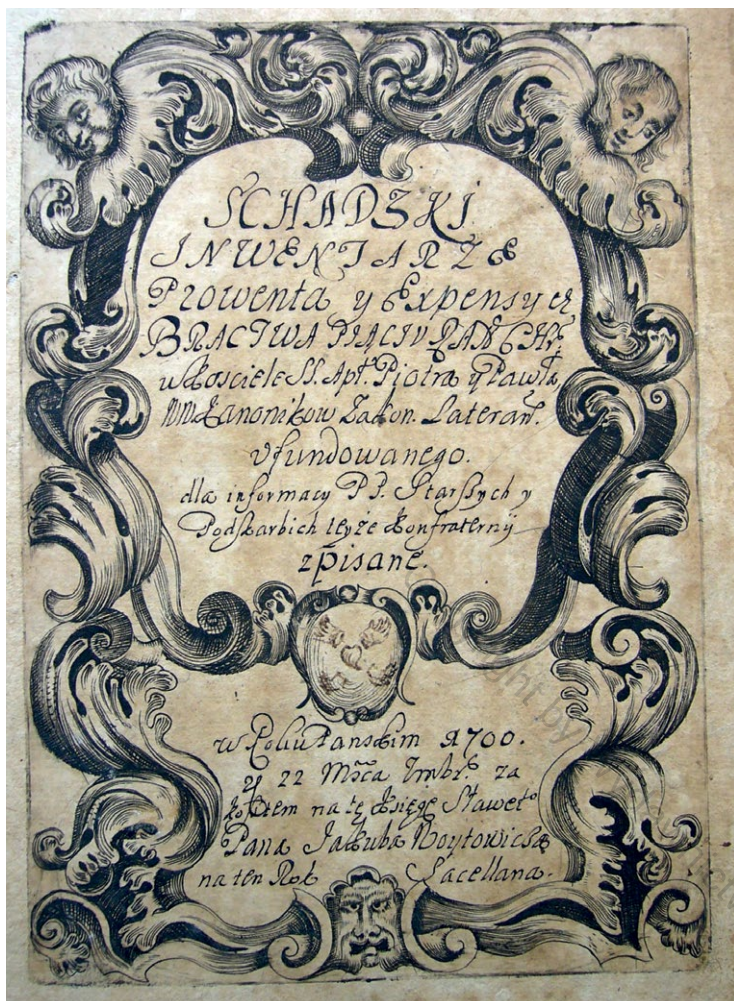 SCHADZKI
INWENTARZE
Prowenta y Expensy
BRACTWA PIĄCIU RAN CHR̃
w Kosciele SS. Apt. Piotra y Pawła
Kanonikow Zakon. Lateran̄.
vfundowanego.
dla informacy P P. Starszych y
Podskarbich teyże Konfraternij
zpisane.
w Roku Panskim 1700.
22 Za
na tę Księgę
Pana Jakuba Woytowicza
na ten Rok Sacellana.